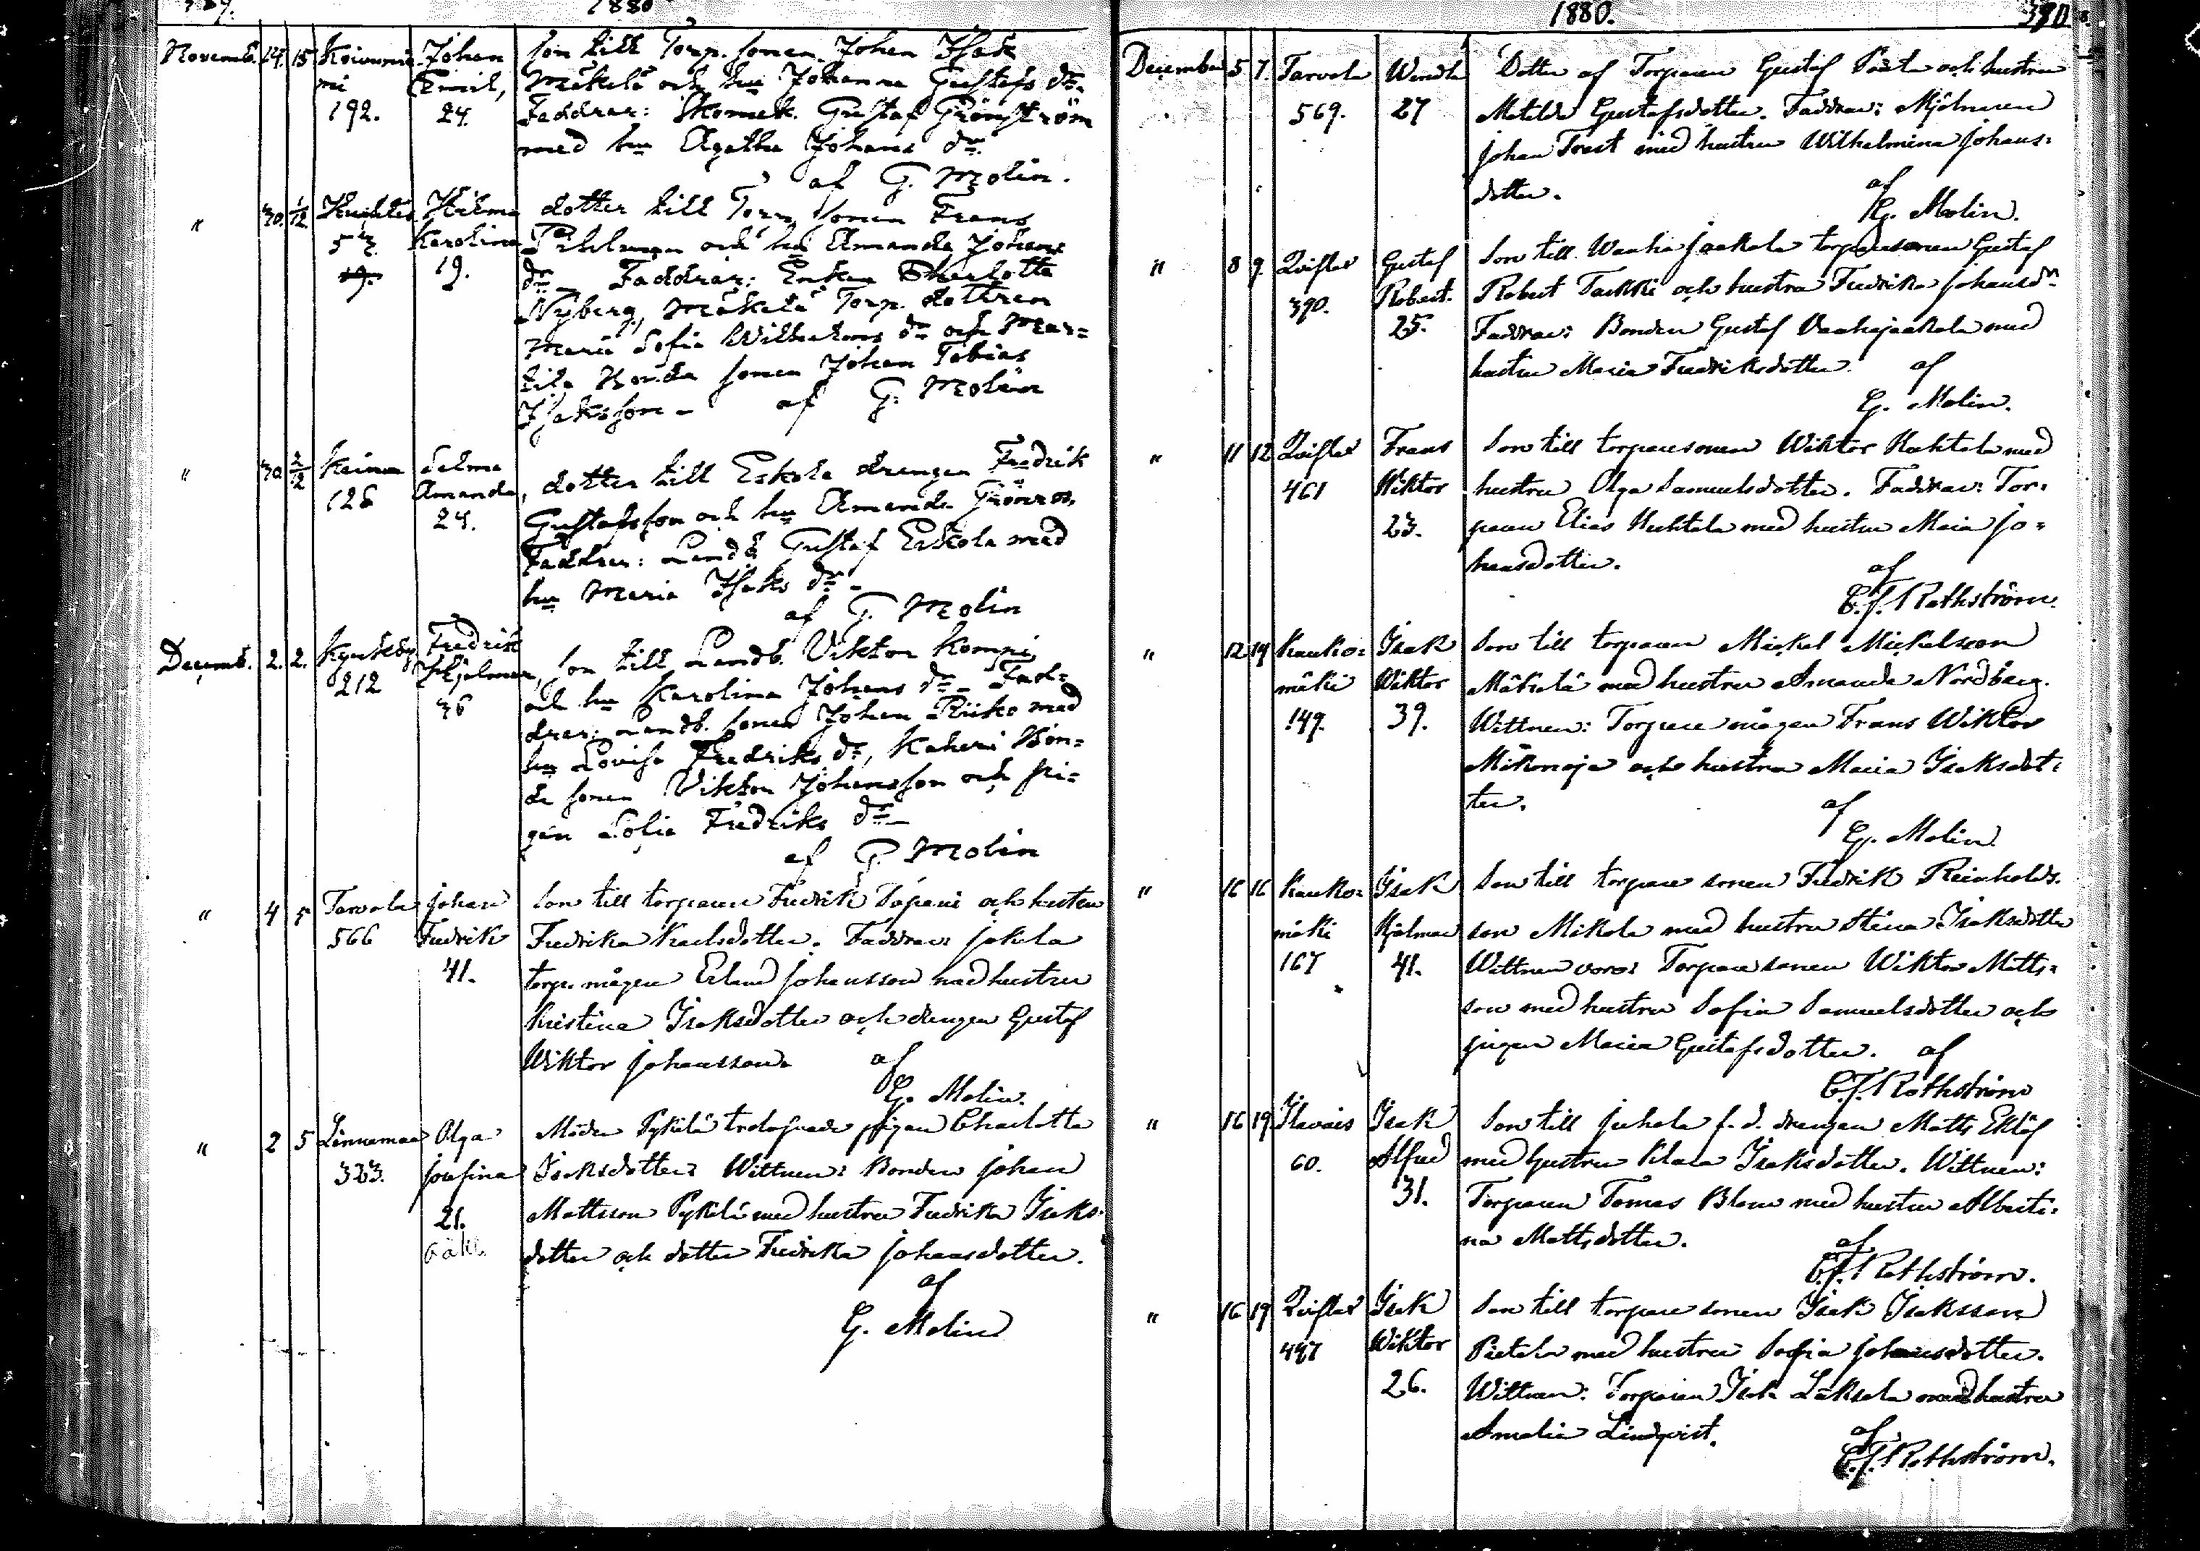 1880
Novemb. 14. 15 Koivunie Johan son till Torp. sonen Johan Isak
mi Emil, Mäkelä och hu Johanna Gustafs dr.
192. 24. Faddrar: Skomak. Gustaf Grönström
med hu Agatha Johans dr.
af G. Molin.
" 30. 1/12 Hilma dotter till Torp. sonen Frans
Karolina och hu Amanda Johans
19. 19. dr Faddrar: Enkan Charlotta
Nyberg, Mäkelä Torp. dottren
Maria Sofia Wilhelms dr och Mar=
tila Bonda sonen Johan Tobias
Isaksson - af G. Molin
" 30 2/12 Keima Selma
126 Amanda, dotter till Eskola drengen Fredrik
24. Gustafsson och hu Amanda Grönros,
Faddrar: Landb. Gustaf Eskola med
hu Maria Isaks dr -
af G. Molin
Decemb. 2. 2. Fredrik
212 Hjalmar, son till Landb. Viktor Kompi
36 och hu Karolina Johans dr - Fad=
drar: Landb. sonen Johan Riiko med
hu Lovisa Fredriks dr, Kaheri Bon=
de sonen Viktor Johansson och pi=
gan Sofia Fredriks dr -
af G. Molin
" 4 5 Tarvola Johan Son till torparen Fredrik Tapani och hustru
566 Fredrik Fredrika Karlsdotter. Faddrar: Jokela
41. torp. mågen Erland Johansson med hustru
Kristina Isaksdotter och drengen Gustaf
Wiktor Johansson. af
G. Molin.
" 2 5 Linnamaa Olga Moder Pykälä trolofvade pigan Charlotta
323. Josefina Isaksdotter: Wittnen: Bonden Johan
21. Mattsson Pykälä med hustru Fredrika Isaks-
oäkt. dotter och dotter Fredrika Johansdotter.
af
G. Molin
1880. 390
December 5 7. Tarvola Wendla Dotter af Torparen Gustaf och hustru
569. 27 Matilda Gustafsdotter. Faddrar: Mjölnaren
Johan Trast med hustru Wilhelmina Johans-
dotter. af
G. Molin.
" 8 9 Qviflax Gustaf Son till Vanhajaakola torparesonen Gustaf
390. Robert. Robert Takki och hustru Fredrika Johansdr
25. Faddrar: Bonden Gustaf Vanhajaakola med
hustru Maria Fredriksdotter. af
G. Molin.
" 11 12 Qviflax Frans Son till torparesonen Wiktor Huhtala med
461 Wiktor hustru Olga Samuelsdotter. Faddrar: Tor-
23. paren Elias Huhtala med hustru Maria Jo=
hansdotter. af
C.J. Rothström.
" 12 19 Kauko= Isak Son till torparen Mickel Mickelsson
mäki Wiktor Mäkelä med hustru Amanda Nordberg.
149. 39. Wittnen: Torpare mågen Frans Wiktor
och hustru Maria Isaksdot-
ter. af
G. Molin.
" 16 16 Kauko= Isak Son till torpare sonen Fredrik Reinholds-
mäki Hjalmar son Mikola med hustru Stina Isaksdotter
167 41. Wittnen voro: Torpare sonen Wiktor Matts-
son med hustru Sofia Samuelsdotter och
pigan Maria Gustafsdotter. af
C.J. Rothström
" 16 19 Ilvais Isak Son till Juhola f. d. drengen Matts Eklöf
60. Alfred med hustru Klara Isaksdotter. Wittnen:
31. Torparen Tomas Blom med hustru Alberti-
na Mattsdotter. af
C.J. Rothström.
" 16 19 Qviflax Isak Son till torpare sonen Isak Isaksson
447 Wiktor Pietola med hustru Sofia Johansdotter.
26. Wittnen: Torparen Isak med hustru
Amalia Lindqvist. af
C.J. Rothström.